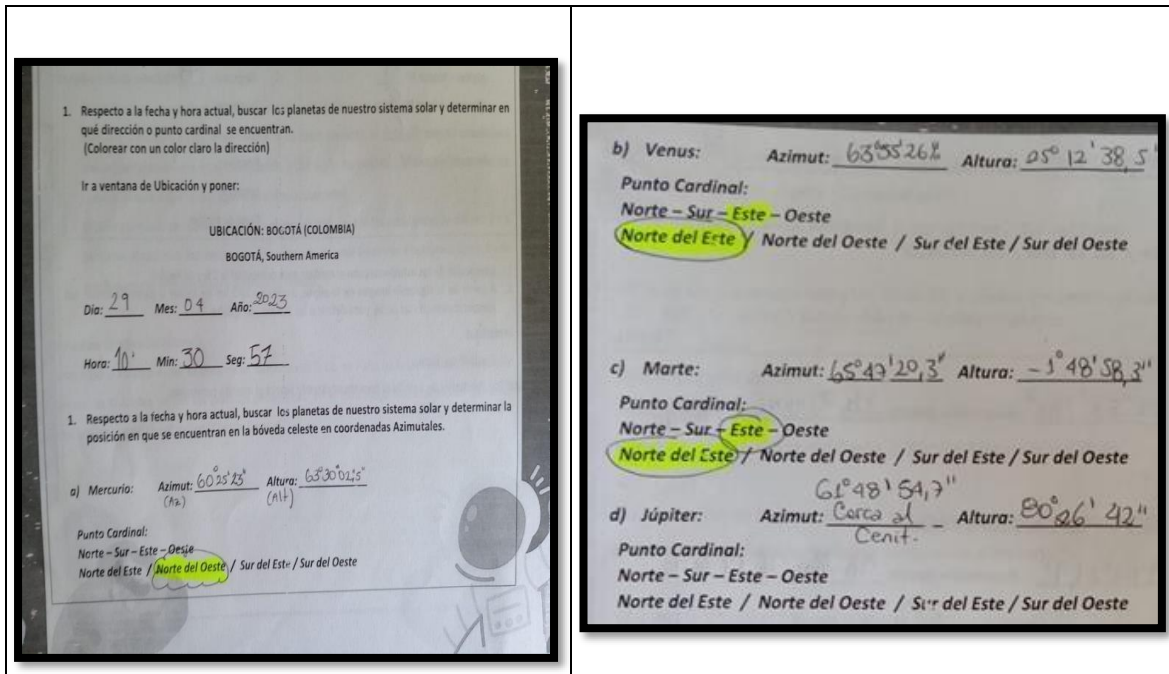 1. Respecto a la fecha y hora actual, buscar los planetas de nuestro sistema solar y determinar en
qué dirección o punto cardinal se encuentran.
(Colorear con un color claro la dirección)
Ir a ventana de Ubicación y poner:
UBICACIÓN: BOGOTÁ (COLOMBIA)
BOGOTÁ, Southern America
Día: 29 Mes: 04 Año: 2023
Hora: 10 Min: 30 Seg: 57
1. Respecto a la fecha y hora actual, buscar los planetas de nuestro sistema solar y determinar la
posición en que se encuentran en la bóveda celeste en coordenadas Azimutales.
a) Mercurio: Azimut: 60°25'23" Altura: 63°30°02,5"
(Az) (Alt)
Punto Cardinal:
Norte – Sur – Este – Oeste
Norte del Este / Norte del Oeste / Sur del Este / Sur del Oeste
b) Venus: Azimut: Altura: 05° 12' 38,5"
Punto Cardinal:
Norte – Sur – Este – Oeste
Norte del Este / Norte del Oeste / Sur del Este / Sur del Oeste
c) Marte: Azimut: 65°47'20,3" Altura: -1°48'58,3"
Punto Cardinal:
Norte – Sur – Este – Oeste
Norte del Este / Norte del Oeste / Sur del Este / Sur del Oeste
61°48'54,7"
d) Júpiter: Azimut: Cerca al Altura: 80°26'42"
Cenit.
Punto Cardinal:
Norte – Sur – Este – Oeste
Norte del Este / Norte del Oeste / Sur del Este / Sur del Oeste